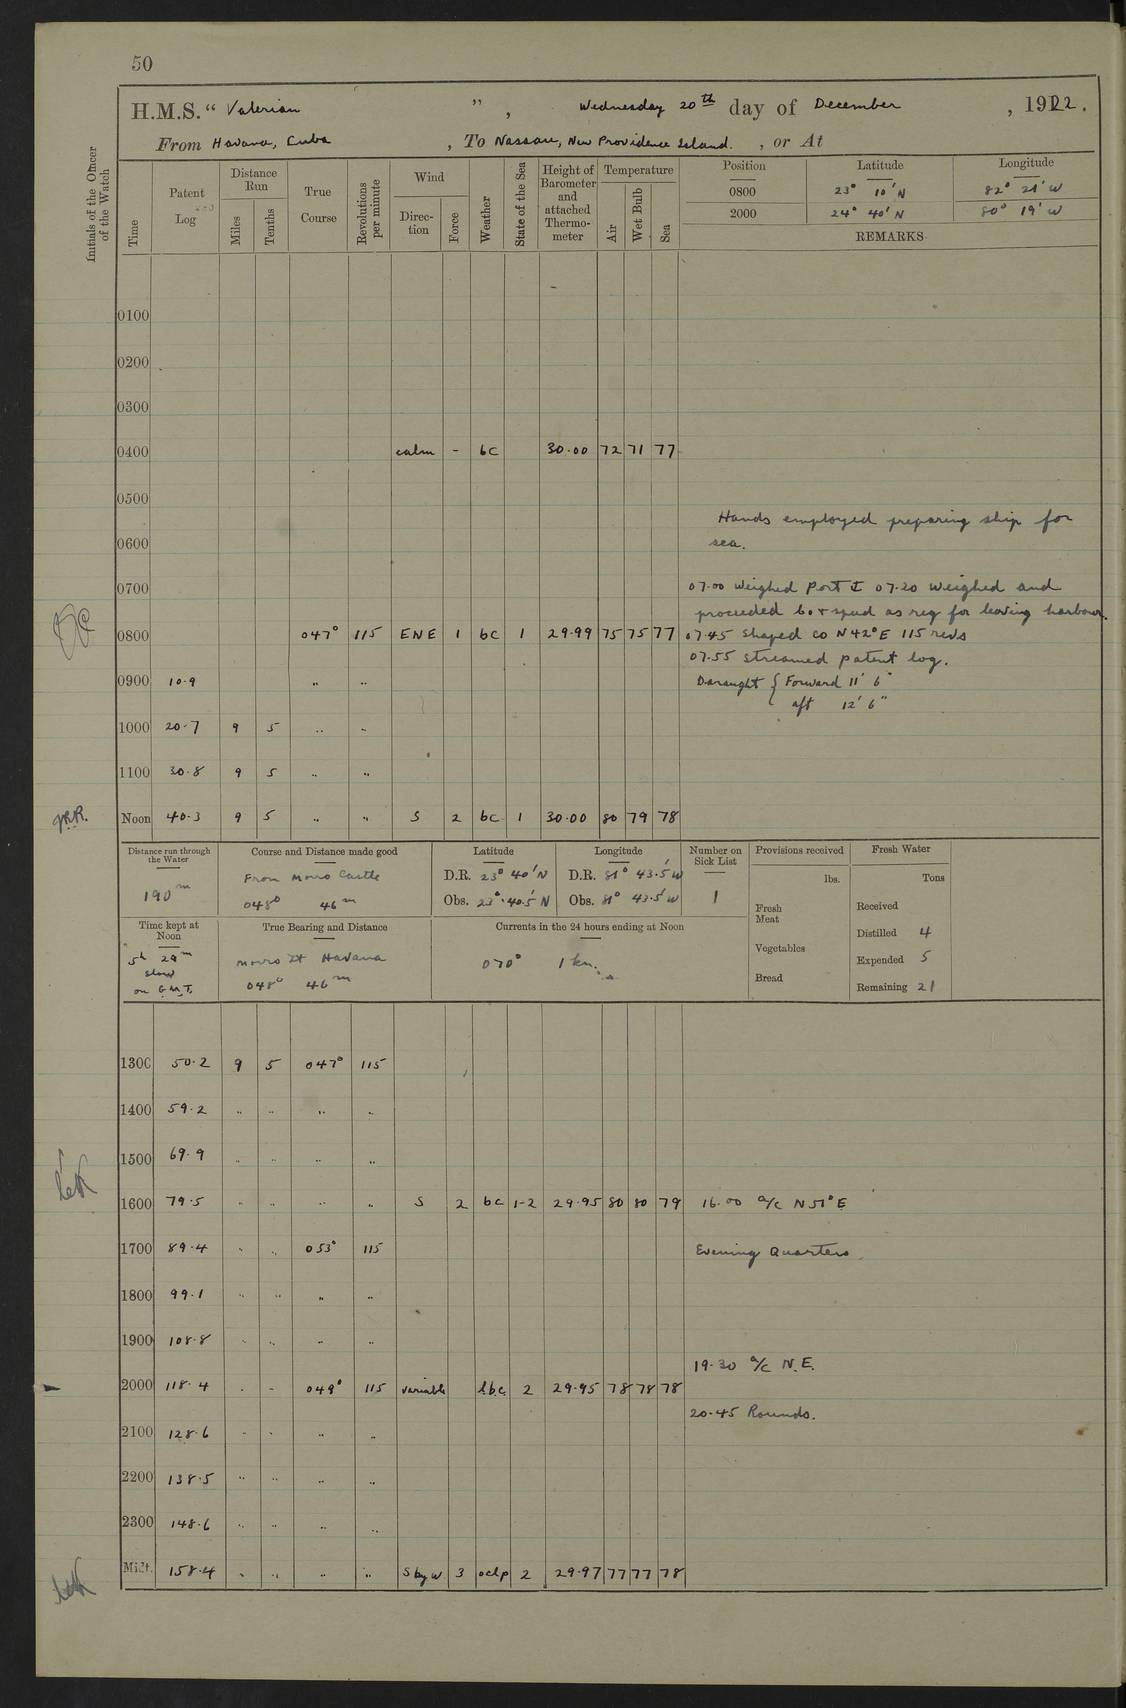 50
H.M.S. " Valerian " , Wednesday 20th day of December , 1922.
From Havana, Cuba , To Nassau, New Providence Island. , or At
Initials of the Officer of the Watch
Time
Patent Log
Distance Run
Miles
Tenths
True Course
Revolutions per minute
Wind
Direction
Force
Weather
State of the Sea
Height of Barometer and attached Thermometer
Temperature
Air
Wet Bulb
Sea
Position Latitude Longitude
0800 23° 10' N 82° 21' W
2000 24° 40' N 80° 19' W
REMARKS
0100
0200
0300
0400 calm - bc 30.00 72 71 77
0500
Hands employed preparing ship for
0600 sea.
0700 07.00 Weighed Port 07.20 Weighed and
proceeded Co + speed as req for leaving harbour.
0800 047° 115 ENE 1 bc 1 29.99 75 75 77 07.45 Shaped co N42°E 115 revs
07.55 Streamed patent log.
0900 10.9 " " Draught { Forward 11' 6"
aft 12' 6"
1000 20.7 9 5 " "
1100 30.8 9 5 " "
JRR.
Noon 40.3 9 5 " " S 2 bc 1 30.00 80 79 78
Distance run through the Water
190m
Course and Distance made good
From Morro Castle
048° 46m
Latitude
D.R. 23° 40' N
Obs. 23° 40.5' N
Longitude
D.R. 81° 43.5' W
Obs. 81° 43.5' W
Number on Sick List
1
Provisions received
lbs.
Fresh Meat
Vegetables
Bread
Fresh Water
Tons
Received
Distilled 4
Expended 5
Remaining 21
Time kept at Noon
5h 29m
slow
on G.M.T.
True Bearing and Distance
Morro Lt Havana
048° 46m
Currents in the 24 hours ending at Noon
070° 1 kn.
1300 50.2 9 5 047° 115
1400 59.2 " " " "
1500 69.9 " " " "
1600 79.5 " " " " S 2 bc 1-2 29.95 80 80 79 16.00 a/c N51°E
1700 89.4 " " 053° 115 Evening Quarters
1800 99.1 " " " "
1900 108.8 " " " "
19.30 a/c N.E.
2000 118.4 " " 049° 115 variable l.b.c. 2 29.95 78 78 78
20.45 Rounds.
2100 128.6 " " " "
2200 138.5 " " " "
2300 148.6 " " " "
Midt. 158.4 " " " " S by W 3 oclp 2 29.97 77 77 78